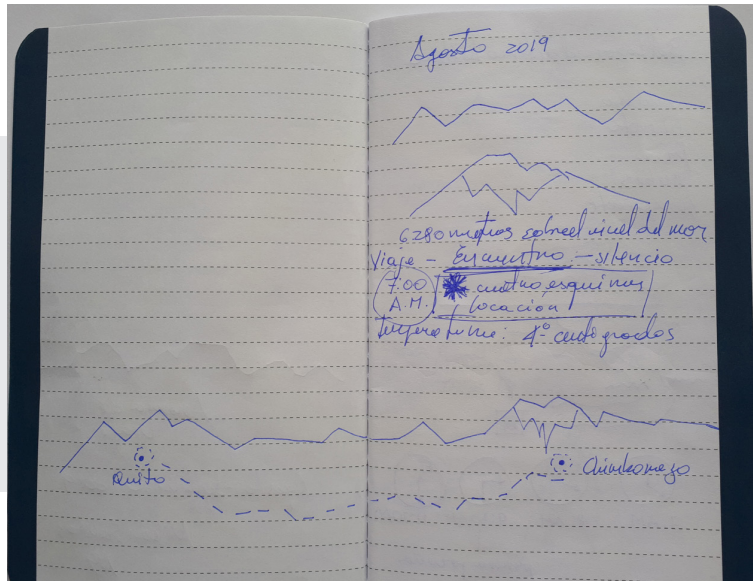 Agosto 2019
6280 metros sobre el nivel del mar
Viaje - Encuentro - silencio
7:00 A.M.
cuatro esquinas
locación
temperatura: 4º centigrados
Quito
Chimborazo